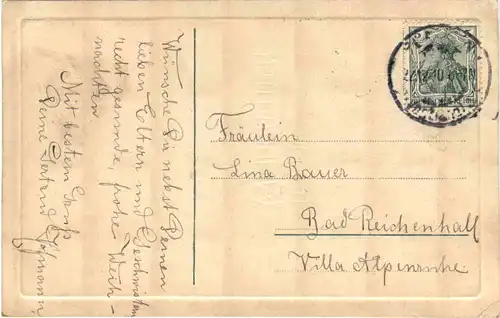 Wünsche Dir nebst Deinen
lieben Eltern und Geschwistern
recht gesunde, frohe Weih-
nachten
Mit bestem Gruß
Deine Gertrud Hofmann
Fräulein
Lina Bauer
Bad Reichenhall
Villa Alpenruhe